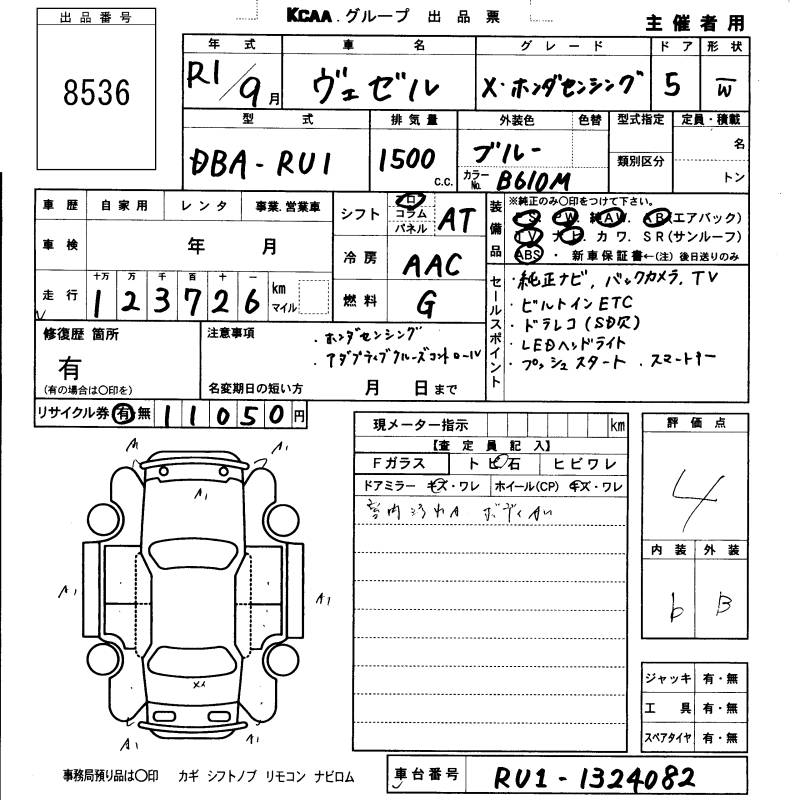 出品番号
8536
KCAA. グループ 出品票
主催者用
年式
R1/9月
車名
ヴェゼル
グレード
X・ホンダセンシング
ドア
5
形状
W
型式
DBA-RU1
排気量
1500
c.c.
外装色
ブルー
色替
カラーNo.
B610M
型式指定
類別区分
定員・積載
名
トン
車歴
自家用
レンタ
事業.営業車
車検
年 月
走行
十万 万 千 百 十 一
1 2 3 7 2 6
km
マイル
シフト
フロ
コラム
パネル
AT
冷房
AAC
燃料
G
装備品
※純正のみ○印をつけて下さい。
PS. PW. 純AW. AB(エアバック)
TV ナビ カワ. SR(サンルーフ)
ABS ・ 新車保証書←(注) 後日送りのみ
セールスポイント
・純正ナビ, バックカメラ, TV
・ビルトインETC
・ドラレコ (SD欠)
・LEDヘッドライト
・プッシュスタート .スマートキー
修復歴 箇所
有
(有の場合は○印を)
注意事項
・ホンダセンシング
・アダプティブクルーズコントロール
名変期日の短い方 月 日まで
リサイクル券 有 無 1 1 0 5 0 円
現メーター指示
km
【査定員記入】
Fガラス
トビ石
ヒビワレ
ドアミラー キズ・ワレ
ホイール(CP) キズ・ワレ
ボディAU
評価点
4
内装
外装
b
B
A1
A1
A1
A1
A1
A1
A1
X1
ジャッキ 有・無
工具 有・無
スペアタイヤ 有・無
事務局預り品は○印 カギ シフトノブ リモコン ナビロム
車台番号
RU1-1324082